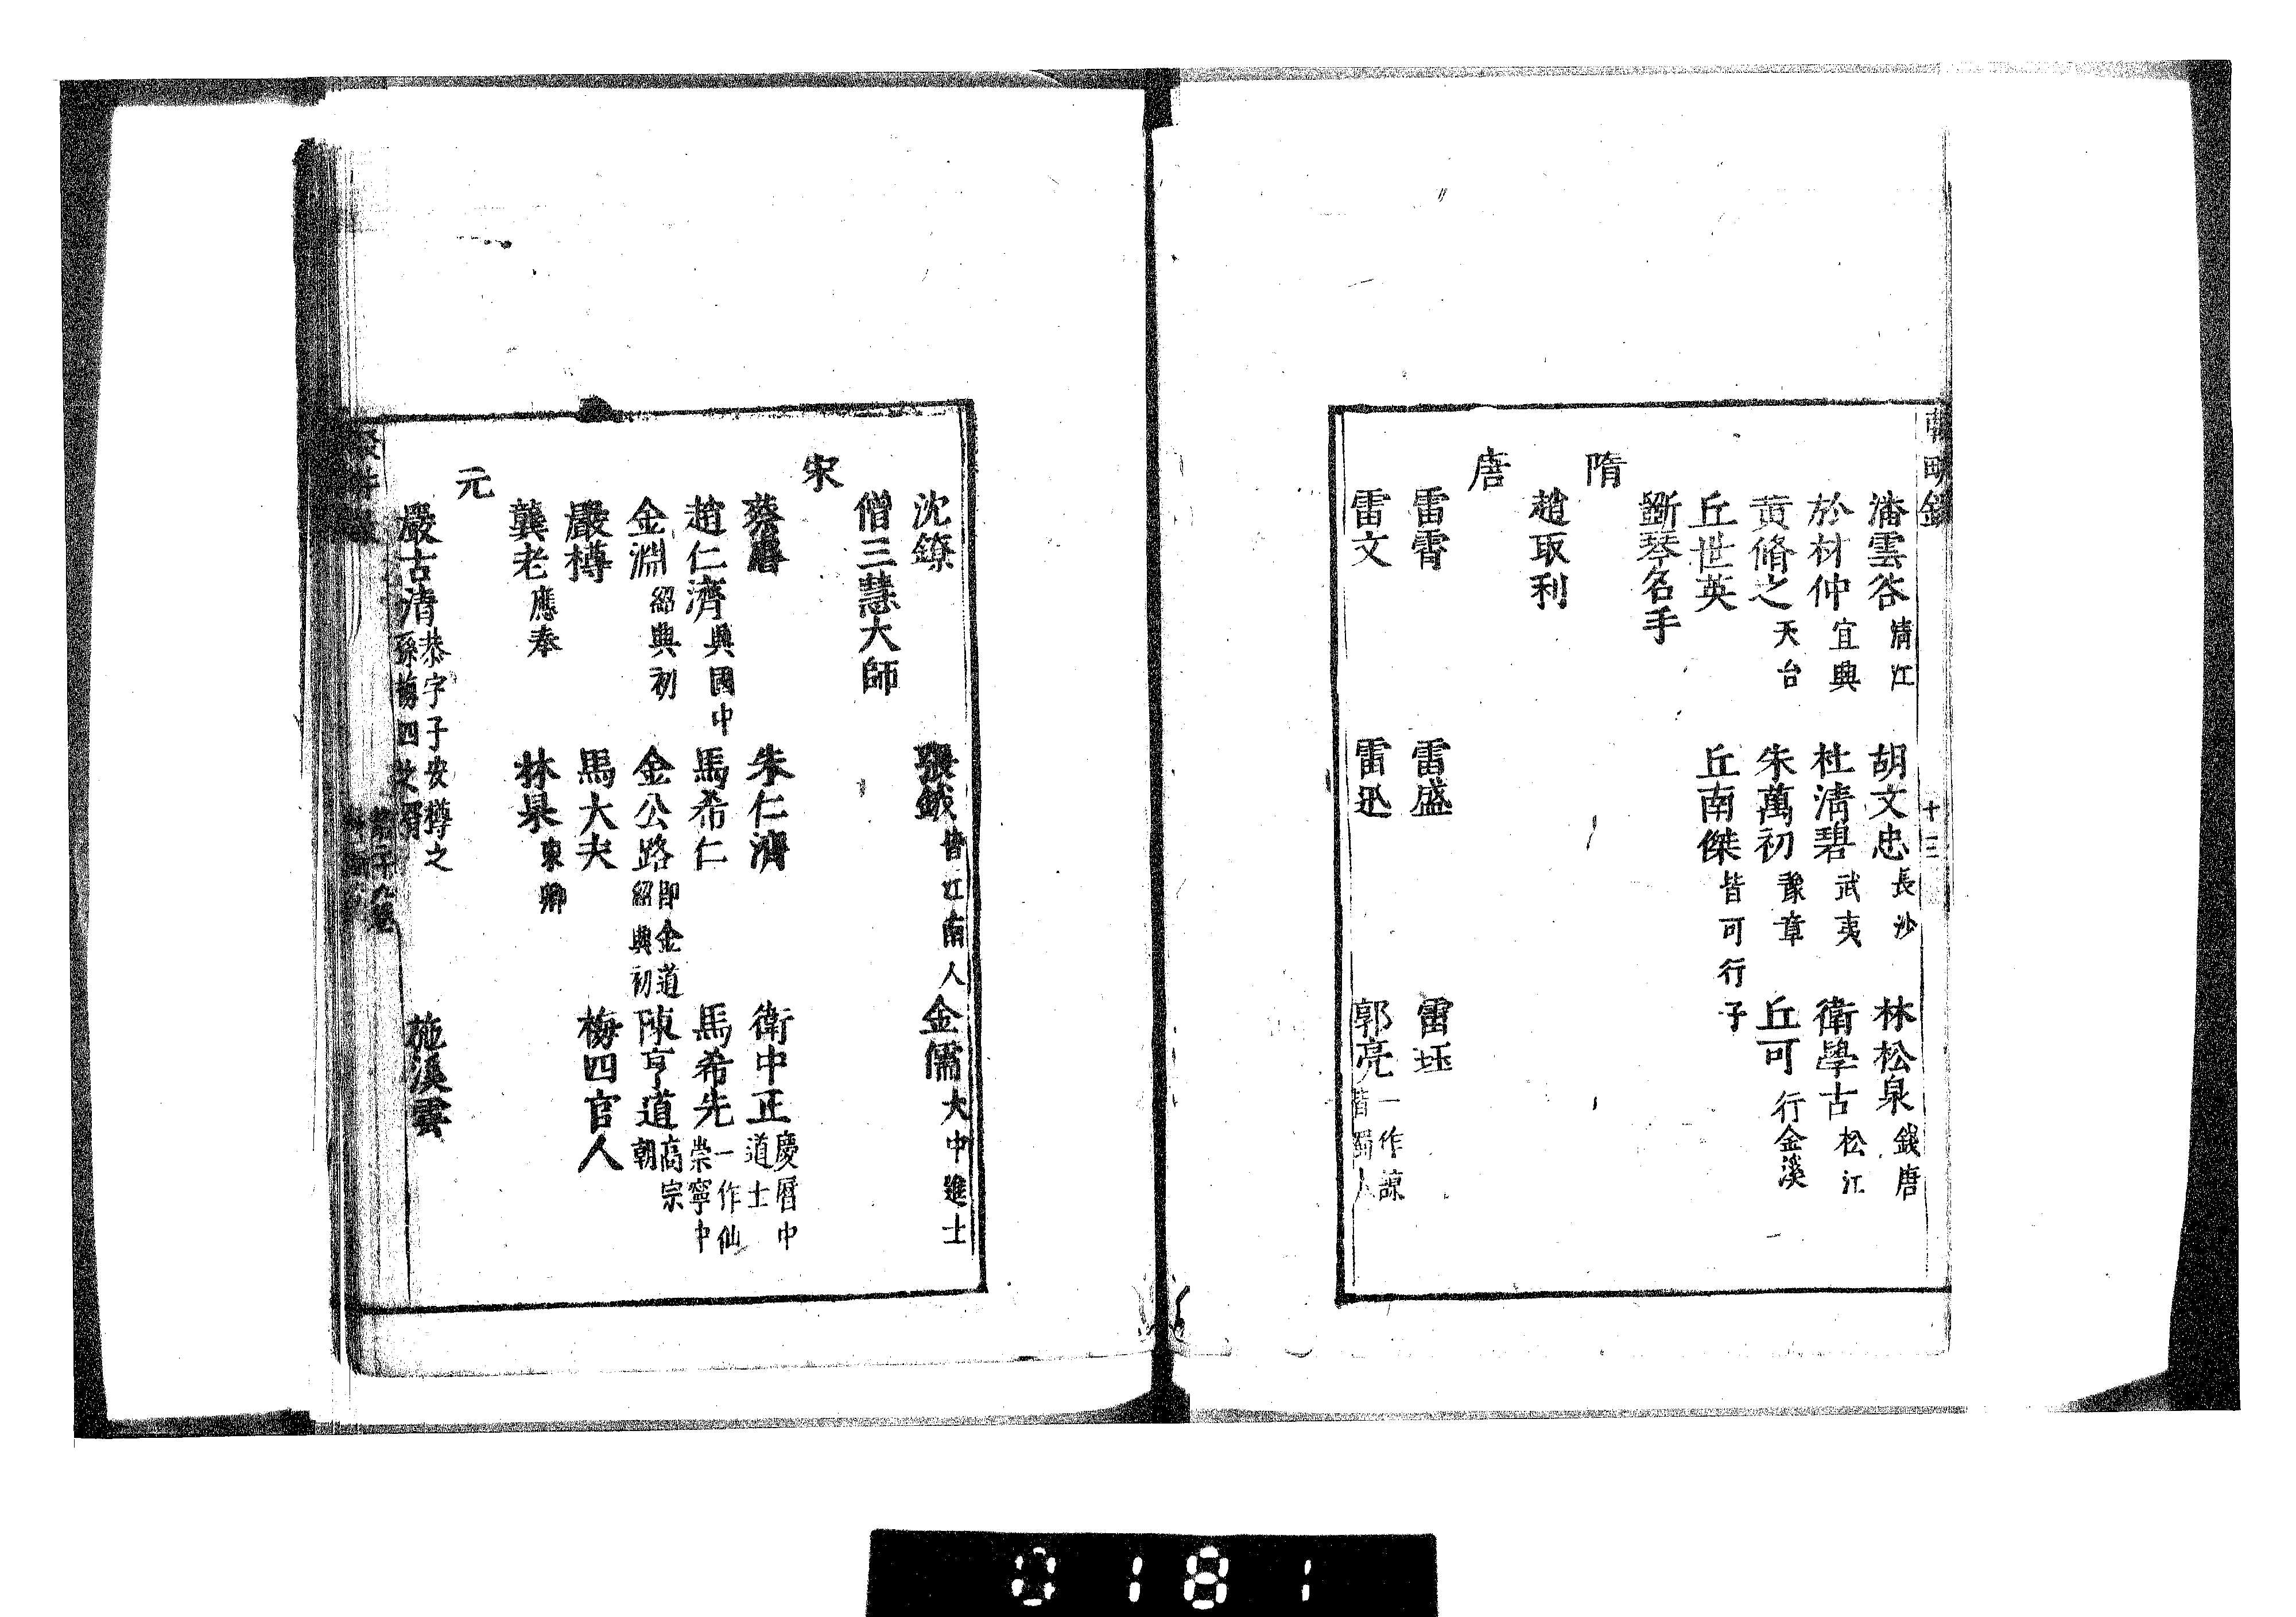 潘雲谷 清江 胡文忠 長沙 林松泉 錢唐
於材仲 宜興 杜清碧 武夷 衛學古 松江
黃脩之 天台 朱萬初 豫章 丘可行 金溪
丘世英 丘南傑 皆可行子
斵琴名手
隋
趙取利
唐
雷霄 雷盛 雷珏
雷文 雷迅 郭亮 一作諒 皆蜀人
十三
沈鐐 張鉞 皆江南人 金儒 大中進士
僧三慧大師
宋
蔡睿 朱仁濟 衛中正 慶曆中道士
趙仁濟 興國中 馬希仁 馬希先 一作仙 崇寧中
金淵 紹興初 金公路 即金道 紹興初 陳亨道 高宗朝
嚴樽 馬大夫 梅四官人
龔老 應奉 林杲 東卿
元
嚴古清 恭字子安樽之孫梅四之壻 施溪雲
0181